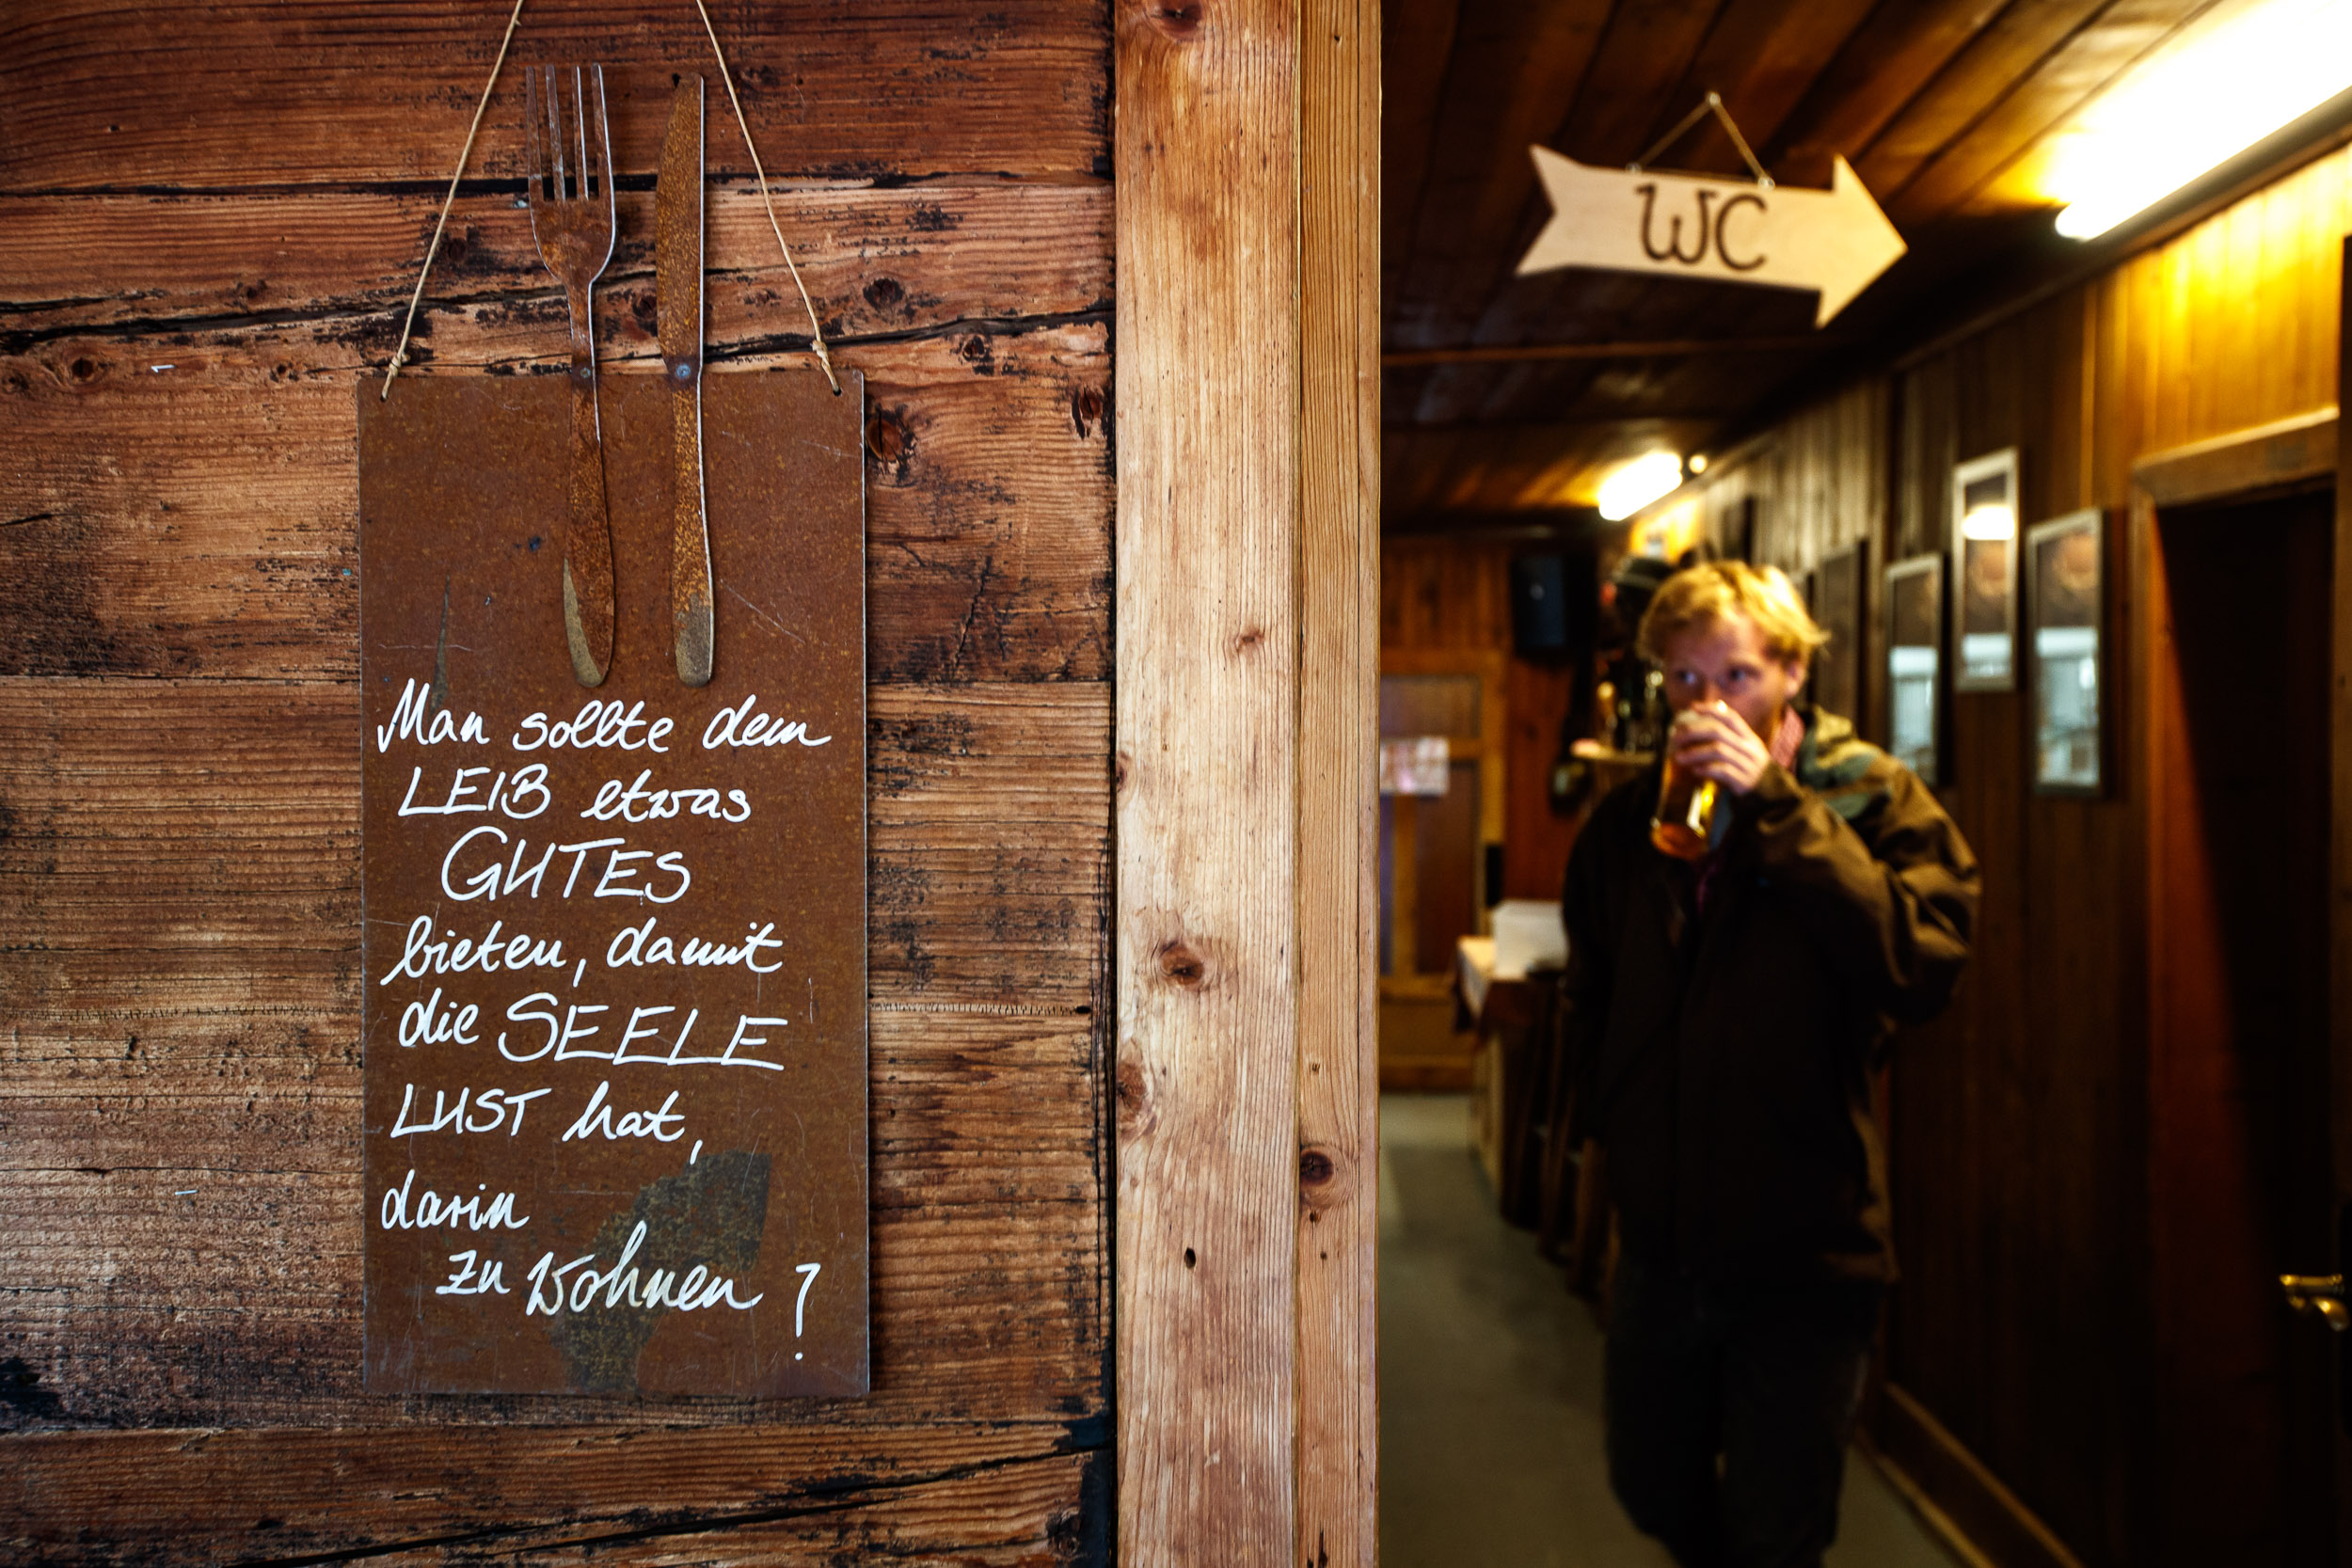 Man sollte dem
LEIB etwas
GUTES
bieten, damit
die SEELE
LUST hat,
darin
zu Wohnen !
WC